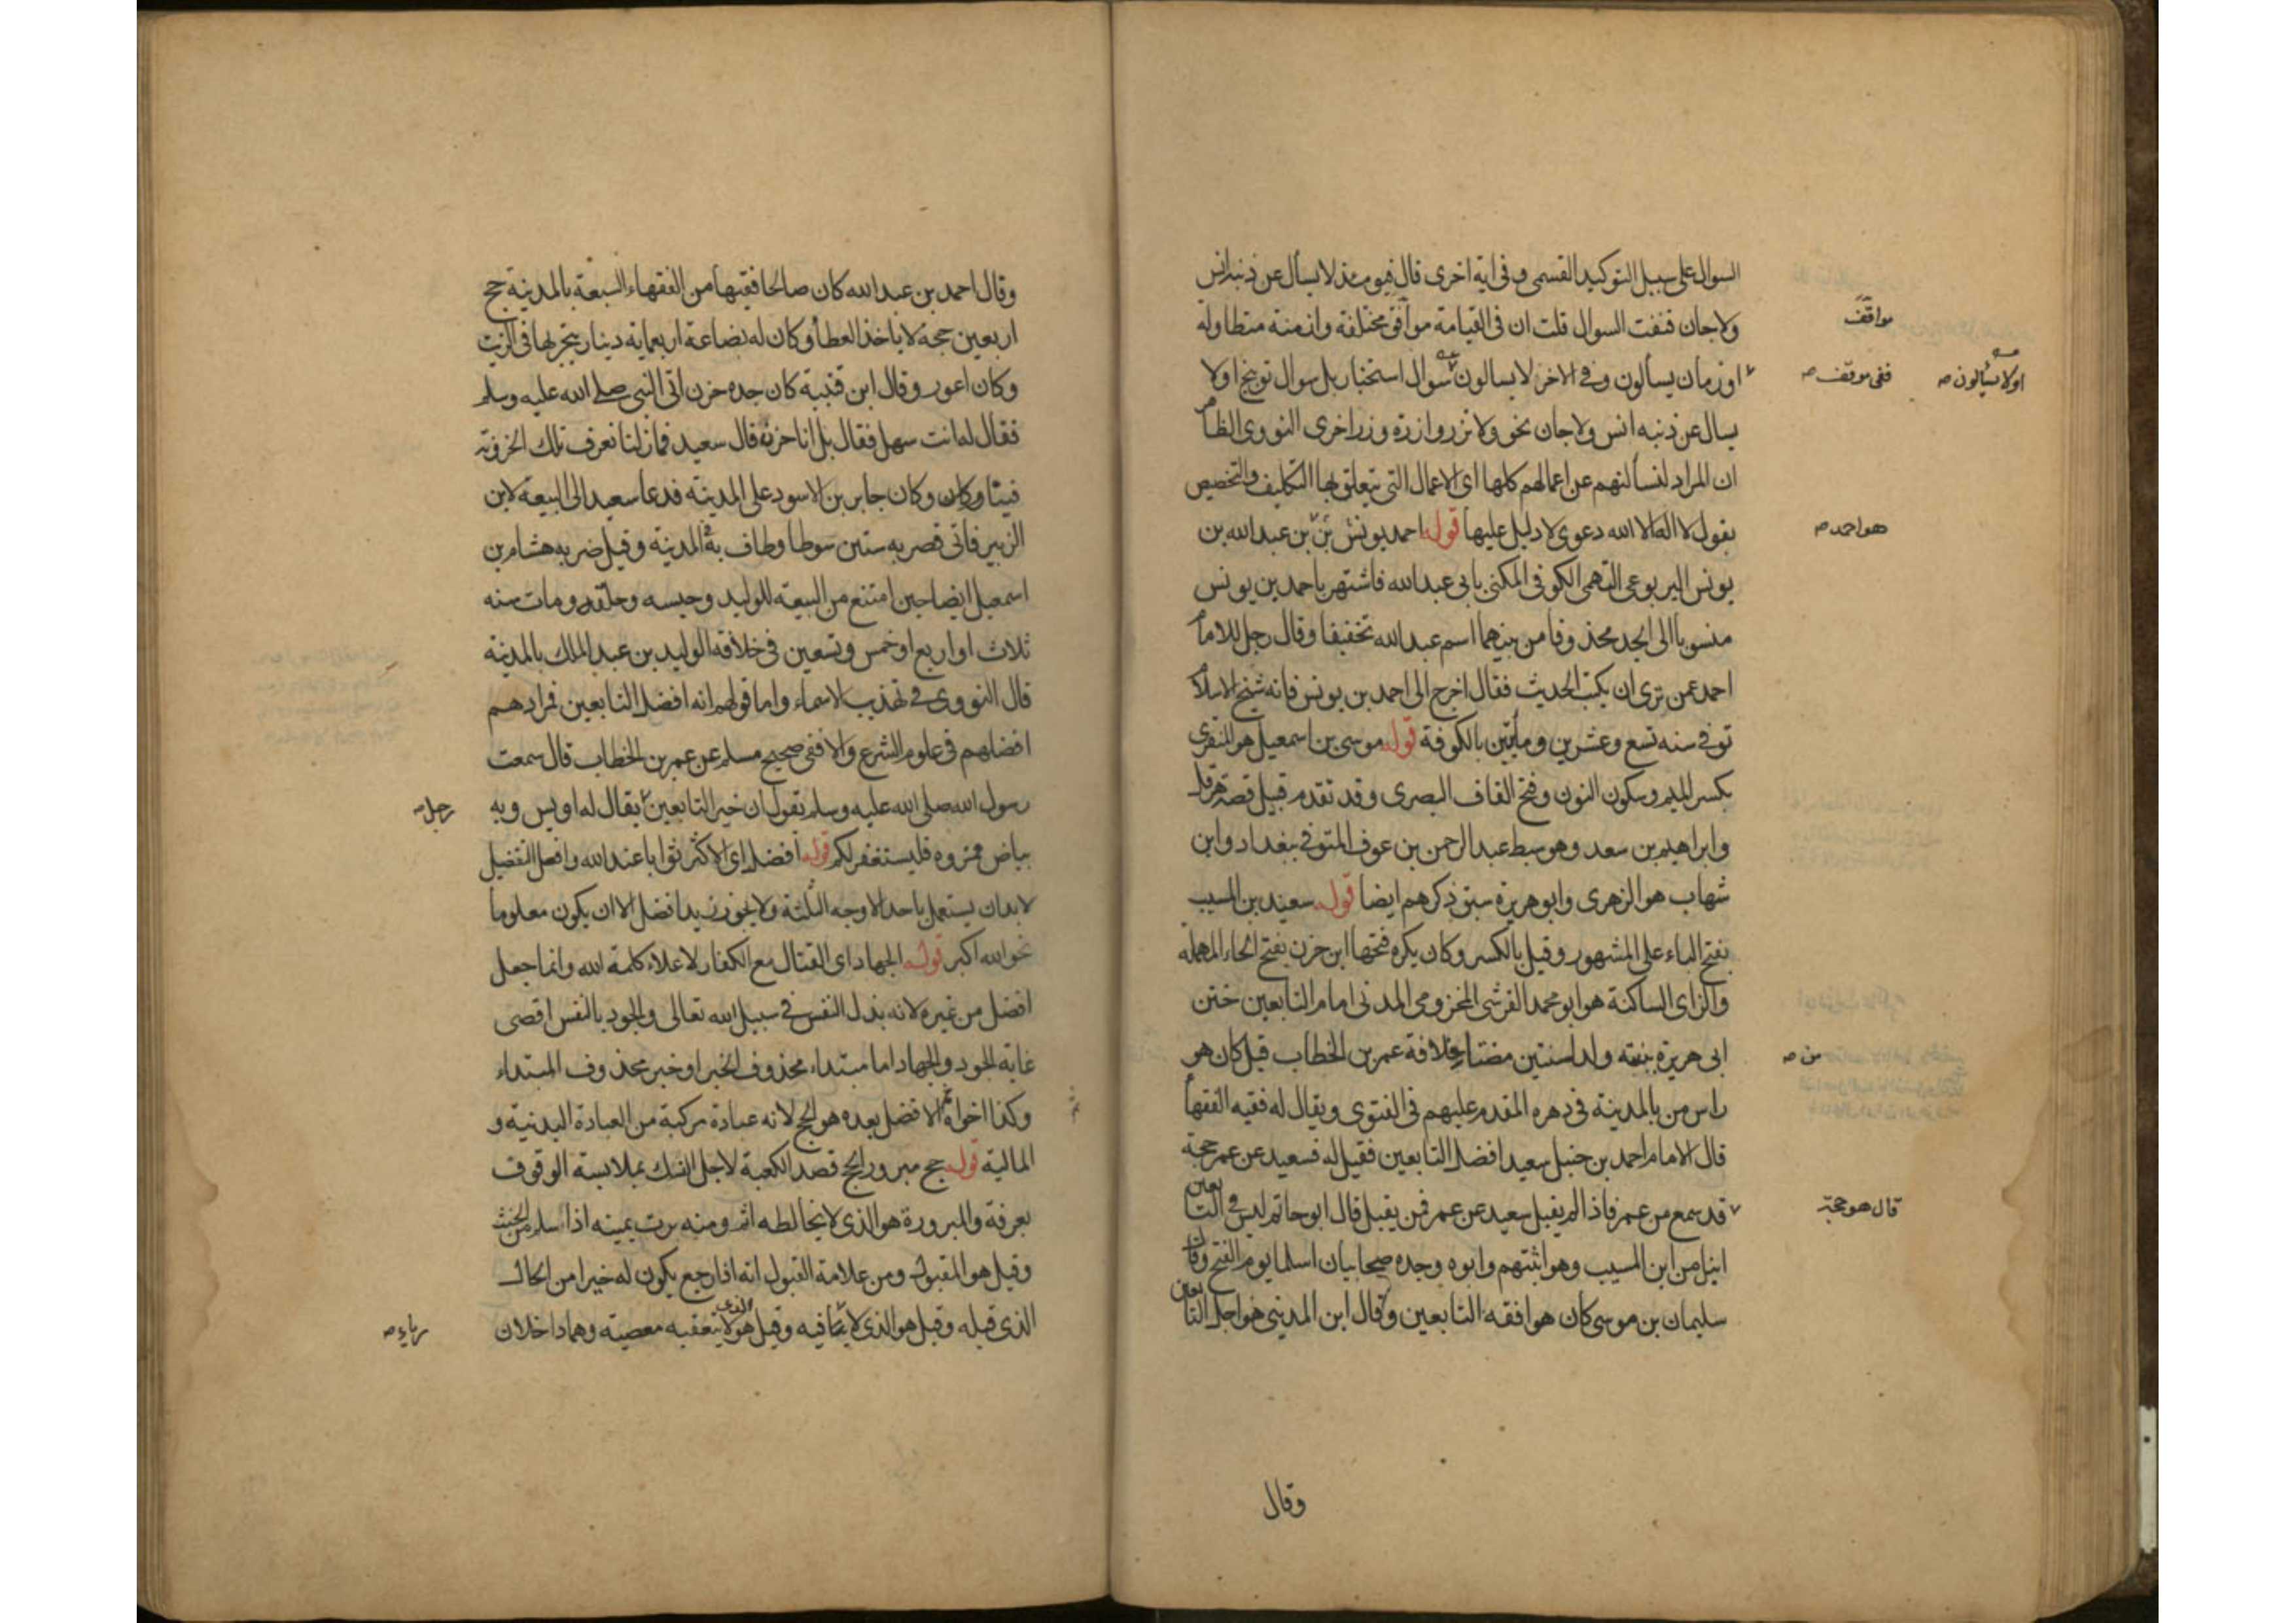 السوال على سبيل التوكيد القسمى وفى اية اخرى قال فيومئذ لا يسأل عن ذنبه انس
ولا جان فنفت السوال قلت ان فى القيامة موافق مختلفة وازمنة متطاوله
مواقف
او زمان يسألون وفى الاخر لا يسالون سوال استخبار بل سوال توبيخ اولا
ففى موقف صح
اولا يسالون صح
يسال عن ذنبه انس ولا جان نحو ولا تزر وازرة وزر اخرى النووى الظاهر
ان المراد لنسألنهم عن اعمالهم كلها اى الاعمال التى يتعلق بها التكليف والتخصيص
بقول لا اله الا الله دعوى لا دليل عليها قوله احمد يونس بن بن عبد الله بن
هو احمد صح
يونس اليربوعى التميمى الكوفى المكنى بابى عبد الله فاشتهر باحمد بن يونس
منسوبا الى الجد محذوفا من بينهما اسم عبد الله تخفيفا وقال رجل للامام
احمد عمن ترى ان يكتب الحديث فقال اخرج الى احمد بن يونس فانه شيخ الاسلام
توفى سنه تسع وعشرين ومأيتين بالكوفة قوله موسى بن اسمعيل هو المنقرى
بكسر الميم وسكون النون وفتح القاف البصرى وقد تقدم قبيل قصة هرقل
وابراهيم بن سعد وهو سبط عبد الرحمن بن عوف المتوفى ببغداد وابن
شهاب هو الزهرى وابو هريرة سبق ذكرهم ايضا قوله سعيد بن المسيب
بفتح الياء على المشهور وقيل بالكسر وكان يكره فتحها ابن حزن بفتح الحاء المهملة
والزاى الساكنة هو ابو محمد القرشى المخزومى المدنى امام التابعين ختن
ابى هريرة بنته ولد لسنتين مضتا خلافة عمر بن الخطاب قيل كان هو
من صح
راس من بالمدينة فى دهره المقدم عليهم فى الفتوى ويقال له فقيه الفقهأ
قال الامام احمد بن حنبل سعيد افضل التابعين فقيل له فسعيد عن عمر حجة
قد سمع من عمر فاذا لم يقبل سعيد عن عمر فمن يقبل قال ابو حاتم ليس فى التابعين
قال هو حجة
انبل من ابن المسيب وهو اثبتهم وابوه وجده صحابيان اسلما يوم الفتح وقال
سليمان بن موسى كان هو افقه التابعين وقال ابن المدينى هو اجل التابعين
وقال
وقال احمد بن عبد الله كان صالحا فقيها من الفقهاء السبعة بالمدينة حج
اربعين حجة لا ياخذ العطأ وكان له بضاعة اربعماية دينار يتجر بها فى الزيت
وكان اعور وقال ابن قتيبة كان جده حزن اتى النبى صلى الله عليه وسلم
فقال له انت سهل فقال بل انا حزن قال سعيد فما زلنا نعرف تلك الحزونة
فينا وكان وكان جابر بن الاسود على المدينة فدعا سعيد الى البيعة لابن
الزبير فاتى فضربه ستين سوطا وطاف به فى المدينة وقيل ضربه هشام بن
اسمعيل ايضا حين امتنع من البيعة للوليد وحبسه وحلقه ومات سنه
ثلاث او اربع او خمس وتسعين فى خلافة الوليد بن عبد الملك بالمدينة
قال النووى فى تهذيب الاسماء واما قولهم انه افضل التابعين فمرادهم
افضلهم فى علوم الشرع والا ففى صحيح مسلم عن عمر بن الخطاب قال سمعت
رسول الله صلى الله عليه وسلم يقول ان خير التابعين يقال له اويس وبه
رجل صح
بياض فمروه فليستغفر لكم قوله افضل اى الاكثر ثوابا عند الله وافعل التفضيل
لا بد ان يستعمل باحد الاوجه الثلثة ولا يجوز زيد افضل الا ان يكون معلوما
نحو الله اكبر قوله الجهاد اى القتال مع الكفار لاعلاء كلمة الله وانما جعل
افضل من غيره لانه بذل النفس فى سبيل الله تعالى والجود بالنفس اقصى
غاية الجود والجهاد اما مبتداء محذوف الخبر او خبر محذوف المبتداء
وكذا اخواه ثم الافضل بعده هو الحج لانه عبادة مركبة من العبادة البدنية و
المالية قوله حج مبرور الحج قصد الكعبة لاجل النسك بملابسة الوقوف
بعرفة والمبرورة هو الذى لا يخالطه اثم ومنه برت يمينه اذا سلم من الحنث
وقيل هو المقبول ومن علامة القبول انه اذا رجع يكون له خيرا من الحال
الذى قبله وقيل هو الذى لا فيه وقيل هو الذى لا يتعقبه معصية وهما داخلان
رياء صح